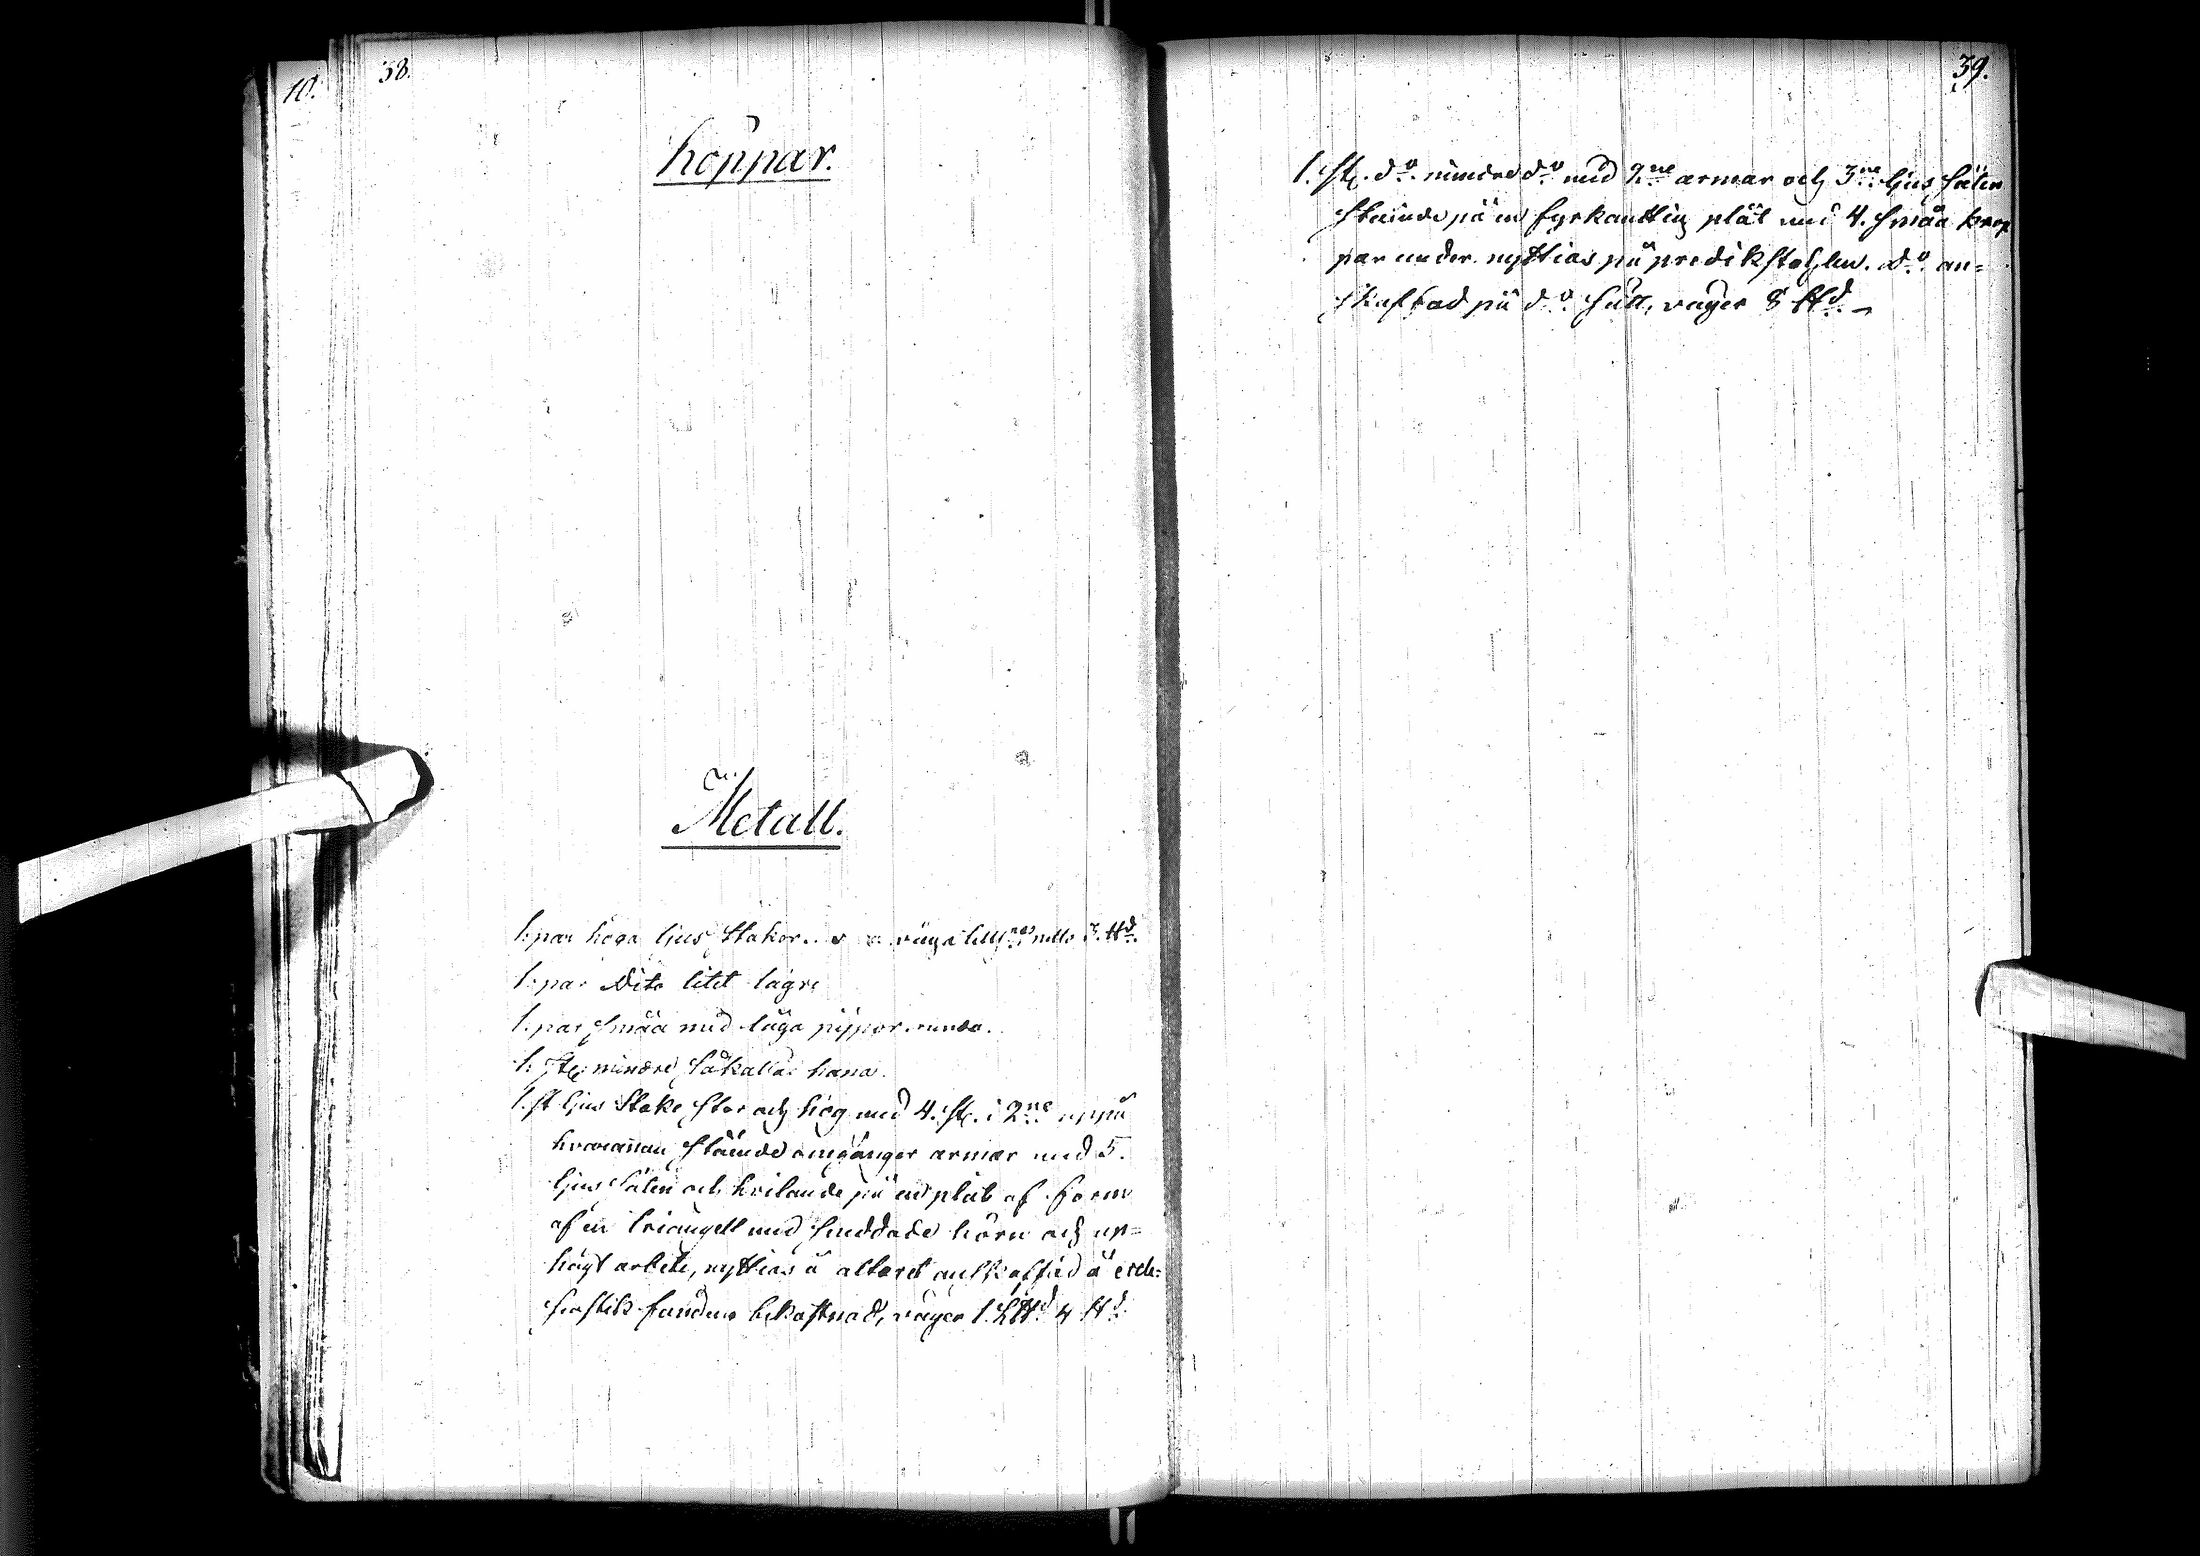 10.
38.
Koppar.
Metall.
1. par höga ljus stakar. väga tillsns netto 3. ℔d.
1. par Dito litet lägre
1. par smäa med låga pijpor runda.
1. st. mindre hana.
1. st ljus Stake stor och hög med 4. st. i 2ne uppå
hvarannan ståënde omgånger armar med 5.
ljus Säten och hvilande på en plåt af form
af en triangell med snuddade hörn och up-
högt arbete, nyttias å altaret anskaffad å eccle-
siastik fondens bekostnad, väger 1. L℔d. 4 ℔d.
39.
1. st. do. mindre do. med 2ne armar och 3ne ljus säten
ståënde på en fyrkanttig plåt med 4. smäa krop
par under nyttias på predikstohlen. do. an-
skaffad på do. sätt, väger 8 ℔d.